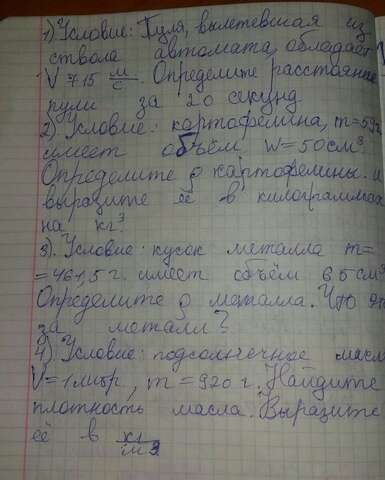 1) Условие: Пуля, вылетевшая из
ствола автомата, обладает
V 715 м/с. Определите расстояние
пули за 20 секунд
2) Условие: картофелина, m=59г
имеет объём W=50см³.
Определите ρ картофелины. и
выразите её в килограммах
на кг³.
3). Условие: кусок металла m=
=461,5 г. имеет объём 65см³
Определите ρ металла. Что это
за металл?
4) Условие: подсолнечное масло
V=1литр, m=920 г. Найдите
плотность масла. Выразите
её в кг/м³